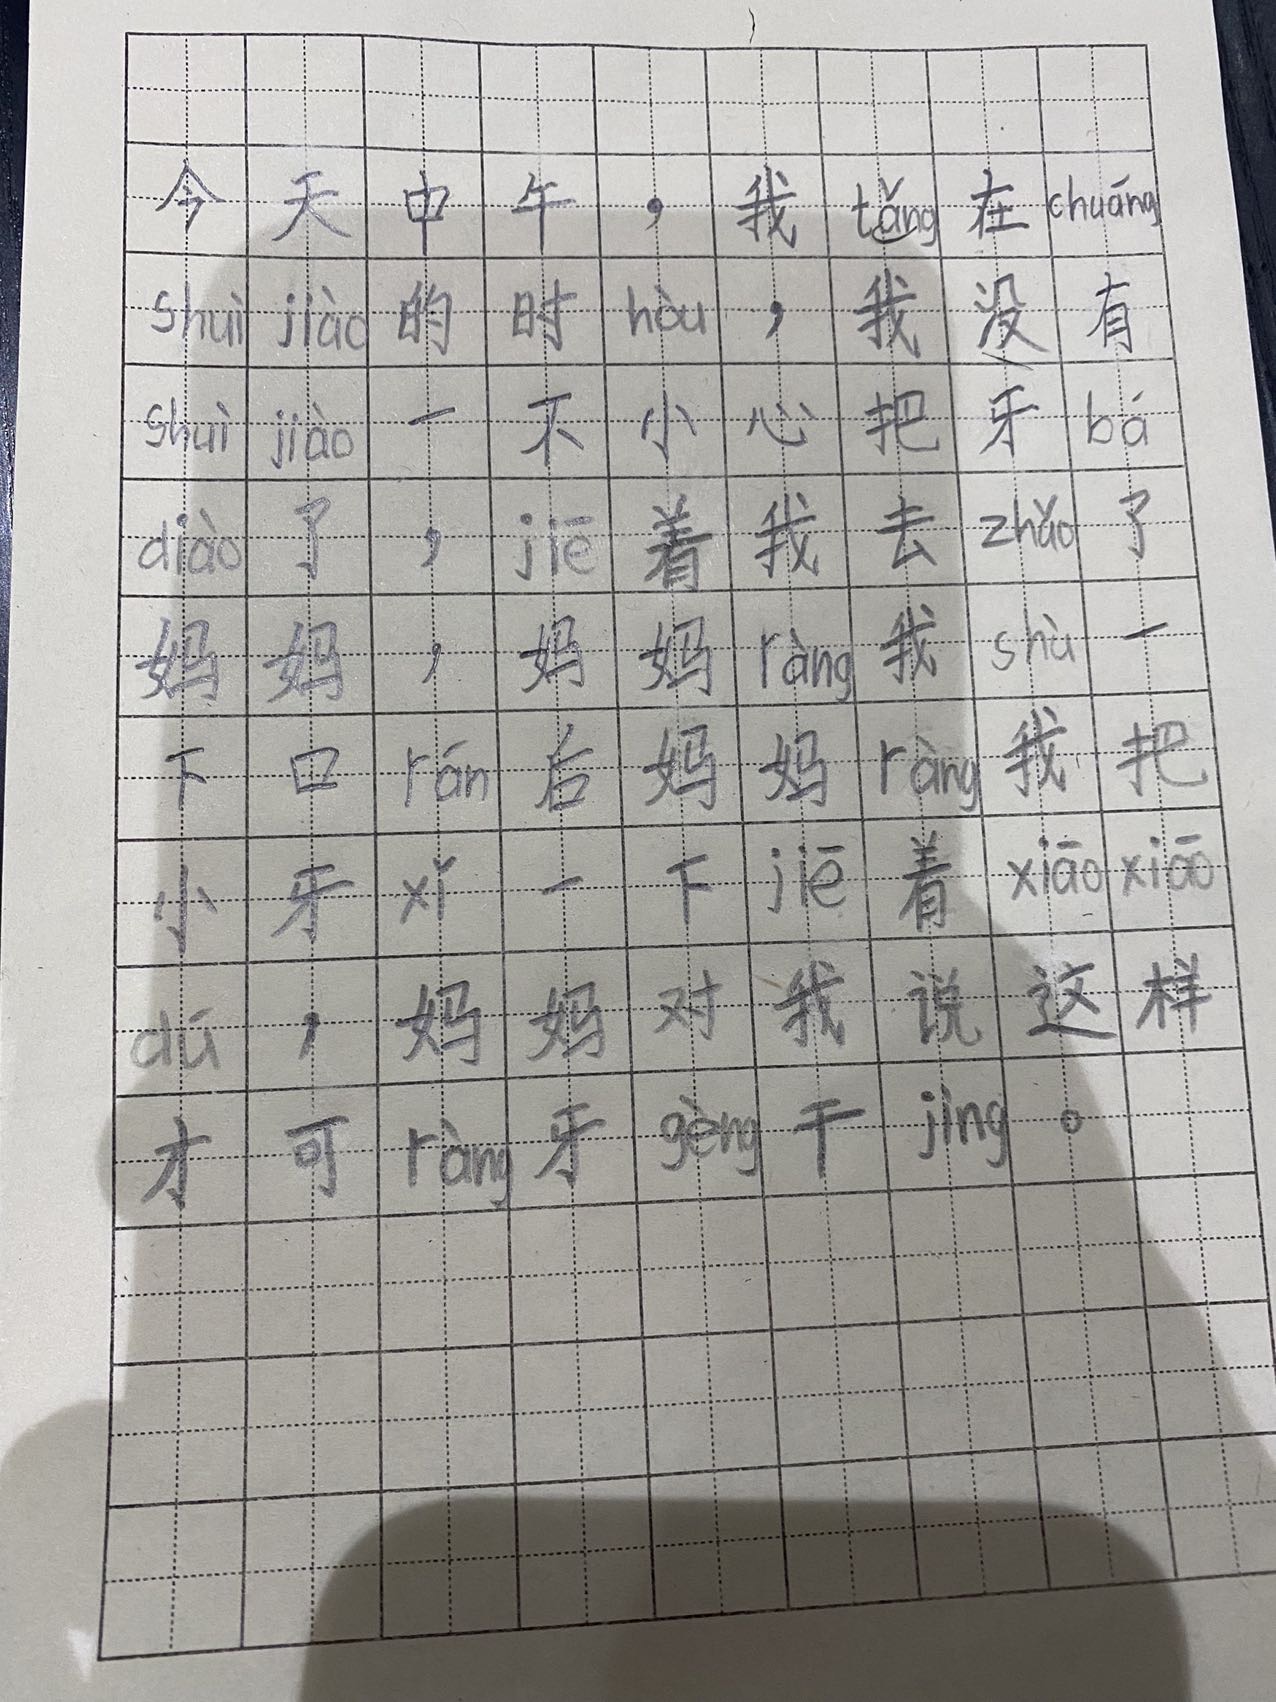 今天中午，我tǎng在chuáng
shuì jiào的时hòu，我没有
shuì jiào一不小心把牙bá
diào了，jiē着我去zhǎo了
妈妈，妈妈ràng我shù一
下口rán后妈妈ràng我把
小牙xǐ一下jiē着xiāo xiāo
dú，妈妈对我说这样
才可ràng牙gèng干jìng。